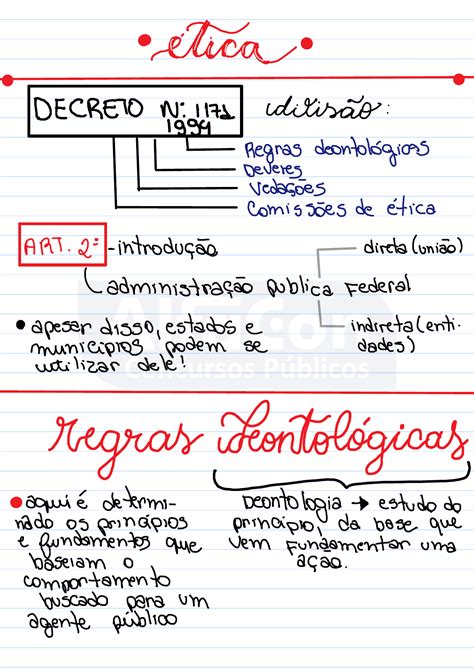 ética
DECRETO Nº 1171
1994
divisão:
Regras deontológicas
Deveres
Vedações
Comissões de ética
ART. 2º - introdução
administração publica Federal
direta (união)
indireta (enti-
dades)
• apesar disso, estados e
municípios podem se
utilizar dele!
AlfaCon
Concursos Públicos
regras deontológicas
• aqui é determi-
nado os princípios
e fundamentos que
baseiam o
comportamento
buscado para um
agente público
Deontologia → estudo do
princípio, da base que
vem fundamentar uma
ação.